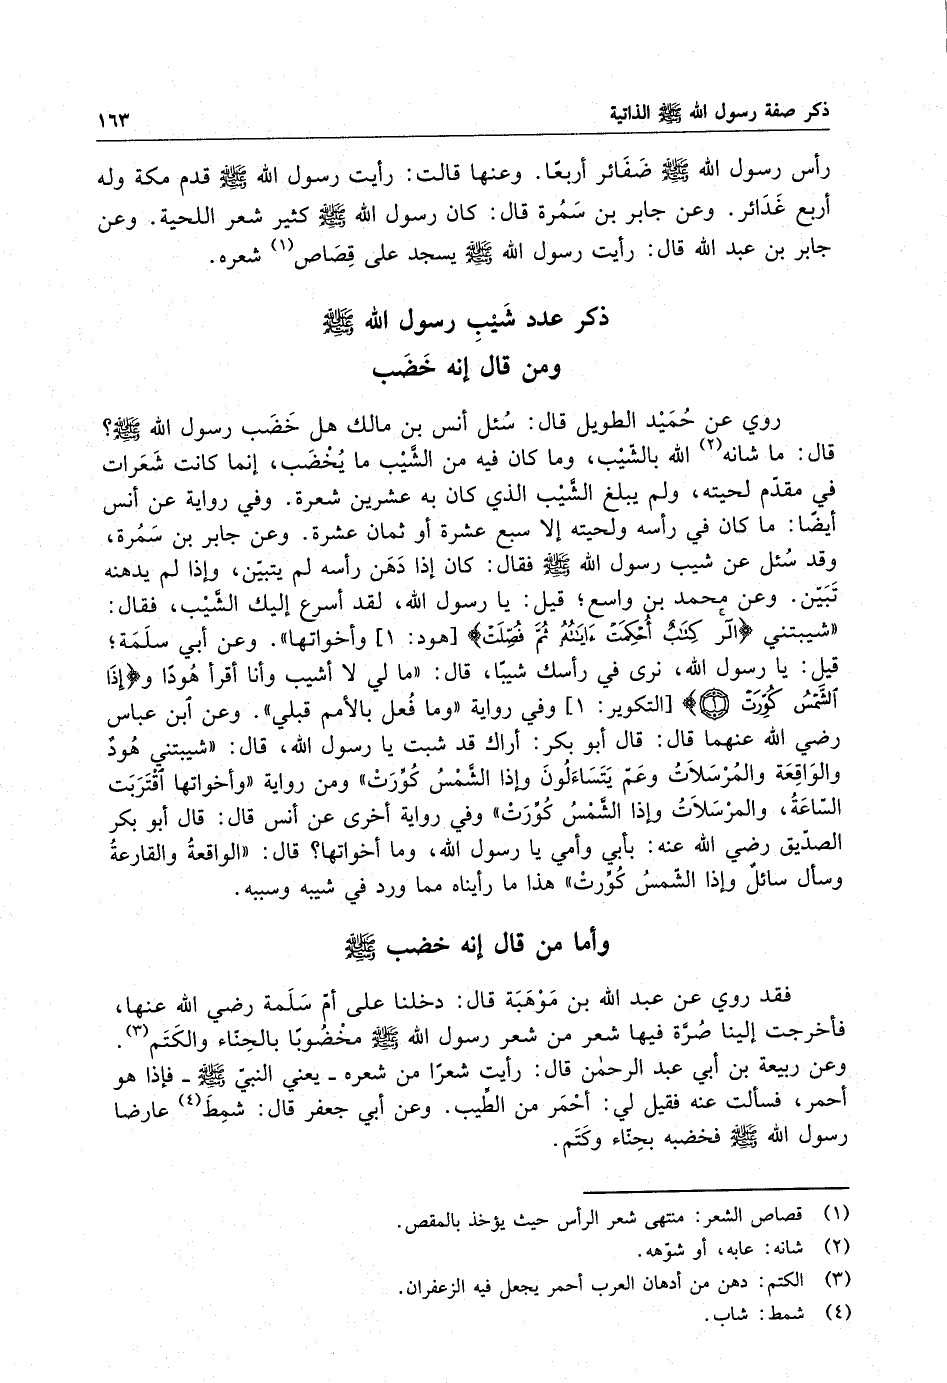 ذكر صفة رسول الله ﷺ الذاتية ١٦٣
رأس رسول الله ﷺ ضَفَائر أربعًا. وعنها قالت: رأيت رسول الله ﷺ قدم مكة وله
أربع غَدَائر. وعن جابر بن سَمُرة قال: كان رسول الله ﷺ كثير شعر اللحية. وعن
جابر بن عبد الله قال: رأيت رسول الله ﷺ يسجد على قِصَاص(١) شعره.
ذكر عدد شَيْبِ رسول الله ﷺ
ومن قال إنه خَضَب
روي عن حُمَيْد الطويل قال: سُئل أنس بن مالك هل خَضَب رسول الله ﷺ؟
قال: ما شانه(٢) الله بالشّيْب، وما كان فيه من الشَّيْب ما يُخْضَب، إنما كانت شَعَرات
في مقدّم لحيته، ولم يبلغ الشَّيْب الذي كان به عشرين شعرة. وفي رواية عن أنس
أيضًا: ما كان في رأسه ولحيته إلا سبع عشرة أو ثمان عشرة. وعن جابر بن سَمُرة،
وقد سُئل عن شيب رسول الله ﷺ فقال: كان إذا دَهَن رأسه لم يتبيّن، وإذا لم يدهنه
تَبَيّن. وعن محمد بن واسع؛ قيل: يا رسول الله، لقد أسرع إليك الشَّيْب، فقال:
«شيبتني ﴿الٓرۚ كِنَٰبٌ أُحْكِمَتْ ءَايَٰتُهُۥ ثُمَّ فُصِّلَتْ﴾ [هود: ١] وأخواتها». وعن أبي سلَمَة؛
قيل: يا رسول الله، نرى في رأسك شيبًا، قال: «ما لي لا أشيب وأنا أقرأ هُودًا و﴿إِذَا
ٱلشَّمْسُ كُوِّرَتْ ۝١﴾ [التكوير: ١] وفي رواية «وما فُعل بالأمم قبلي». وعن ٱبن عباس
رضي الله عنهما قال: قال أبو بكر: أراك قد شبت يا رسول الله، قال: «شيبتني هُودٌ
والوَاقِعَة والمُرْسَلاَتُ وعَمّ يَتَسَاءَلُونَ وإذا الشَّمْسُ كُوِّرَتْ» ومن رواية «وأخواتها ٱقْتَرَبَت
السّاعَةُ، والمرْسَلاَتُ وإذا الشَّمْسُ كُوِّرَتْ» وفي رواية أخرى عن أنس قال: قال أبو بكر
الصدّيق رضي الله عنه: بأبي وأمي يا رسول الله، وما أخواتها؟ قال: «الواقعةُ والقارعةُ
وسأل سائلٌ وإذا الشّمسُ كُوِّرتْ» هذا ما رأيناه مما ورد في شيبه وسببه.
وأما من قال إنه خضب ﷺ
فقد روي عن عبد الله بن مَوْهَبَة قال: دخلنا على أمّ سَلَمة رضي الله عنها،
فأخرجت إلينا صُرَّة فيها شعر من شعر رسول الله ﷺ مخْضُوبًا بالحِنّاء والكَتَم(٣).
وعن ربيعة بن أبي عبد الرحمٰن قال: رأيت شعرًا من شعره ـ يعني النبيّ ﷺ ـ فإذا هو
أحمر، فسألت عنه فقيل لي: أحْمَر من الطِّيب. وعن أبي جعفر قال: شمِطَ(٤) عارضا
رسول الله ﷺ فخضبه بحِنّاء وكَتَم.
(١) قصاص الشعر: منتهى شعر الرأس حيث يؤخذ بالمقص.
(٢) شانه: عابه، أو شوّهه.
(٣) الكتم: دهن من أدهان العرب أحمر يجعل فيه الزعفران.
(٤) شمط: شاب.